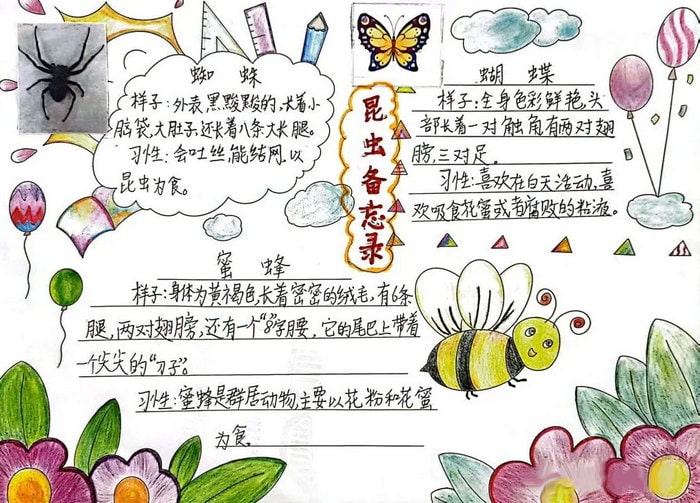 蜘蛛
样子:外表黑黢黢的,长着小
脑袋,大肚子,还长着八条大长腿。
习性:会吐丝,能结网,以
昆虫为食。
昆虫备忘录
蝴蝶
样子:全身色彩鲜艳,头
部长着一对触角,有两对翅
膀,三对足。
习性:喜欢在白天活动,喜
欢吸食花蜜或者腐败的粘液。
蜜蜂
样子:身体为黄褐色,长着密密的绒毛,有6条
腿,两对翅膀,还有一个“8”字腰,它的尾巴上带着
一个尖尖的“刀子”。
习性:蜜蜂是群居动物,主要以花粉和花蜜
为食。